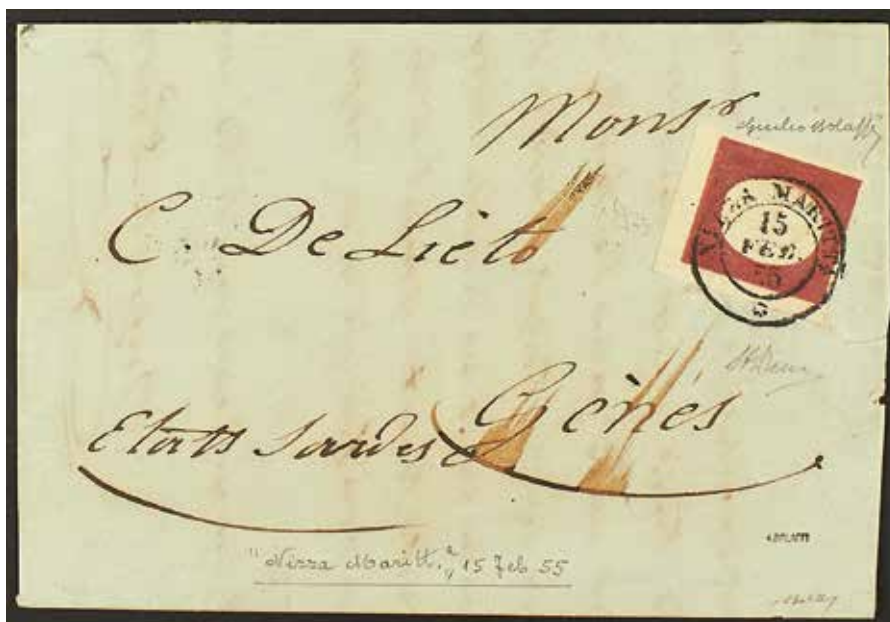 Monsr
Giulio Bolaffi
NIZZA MARITT.
15
FEB.
55
C. De Liéto
Gènés
Etats Sardes
A.BOLAFFI
"Nizza Maritt.a" 15 Feb 55